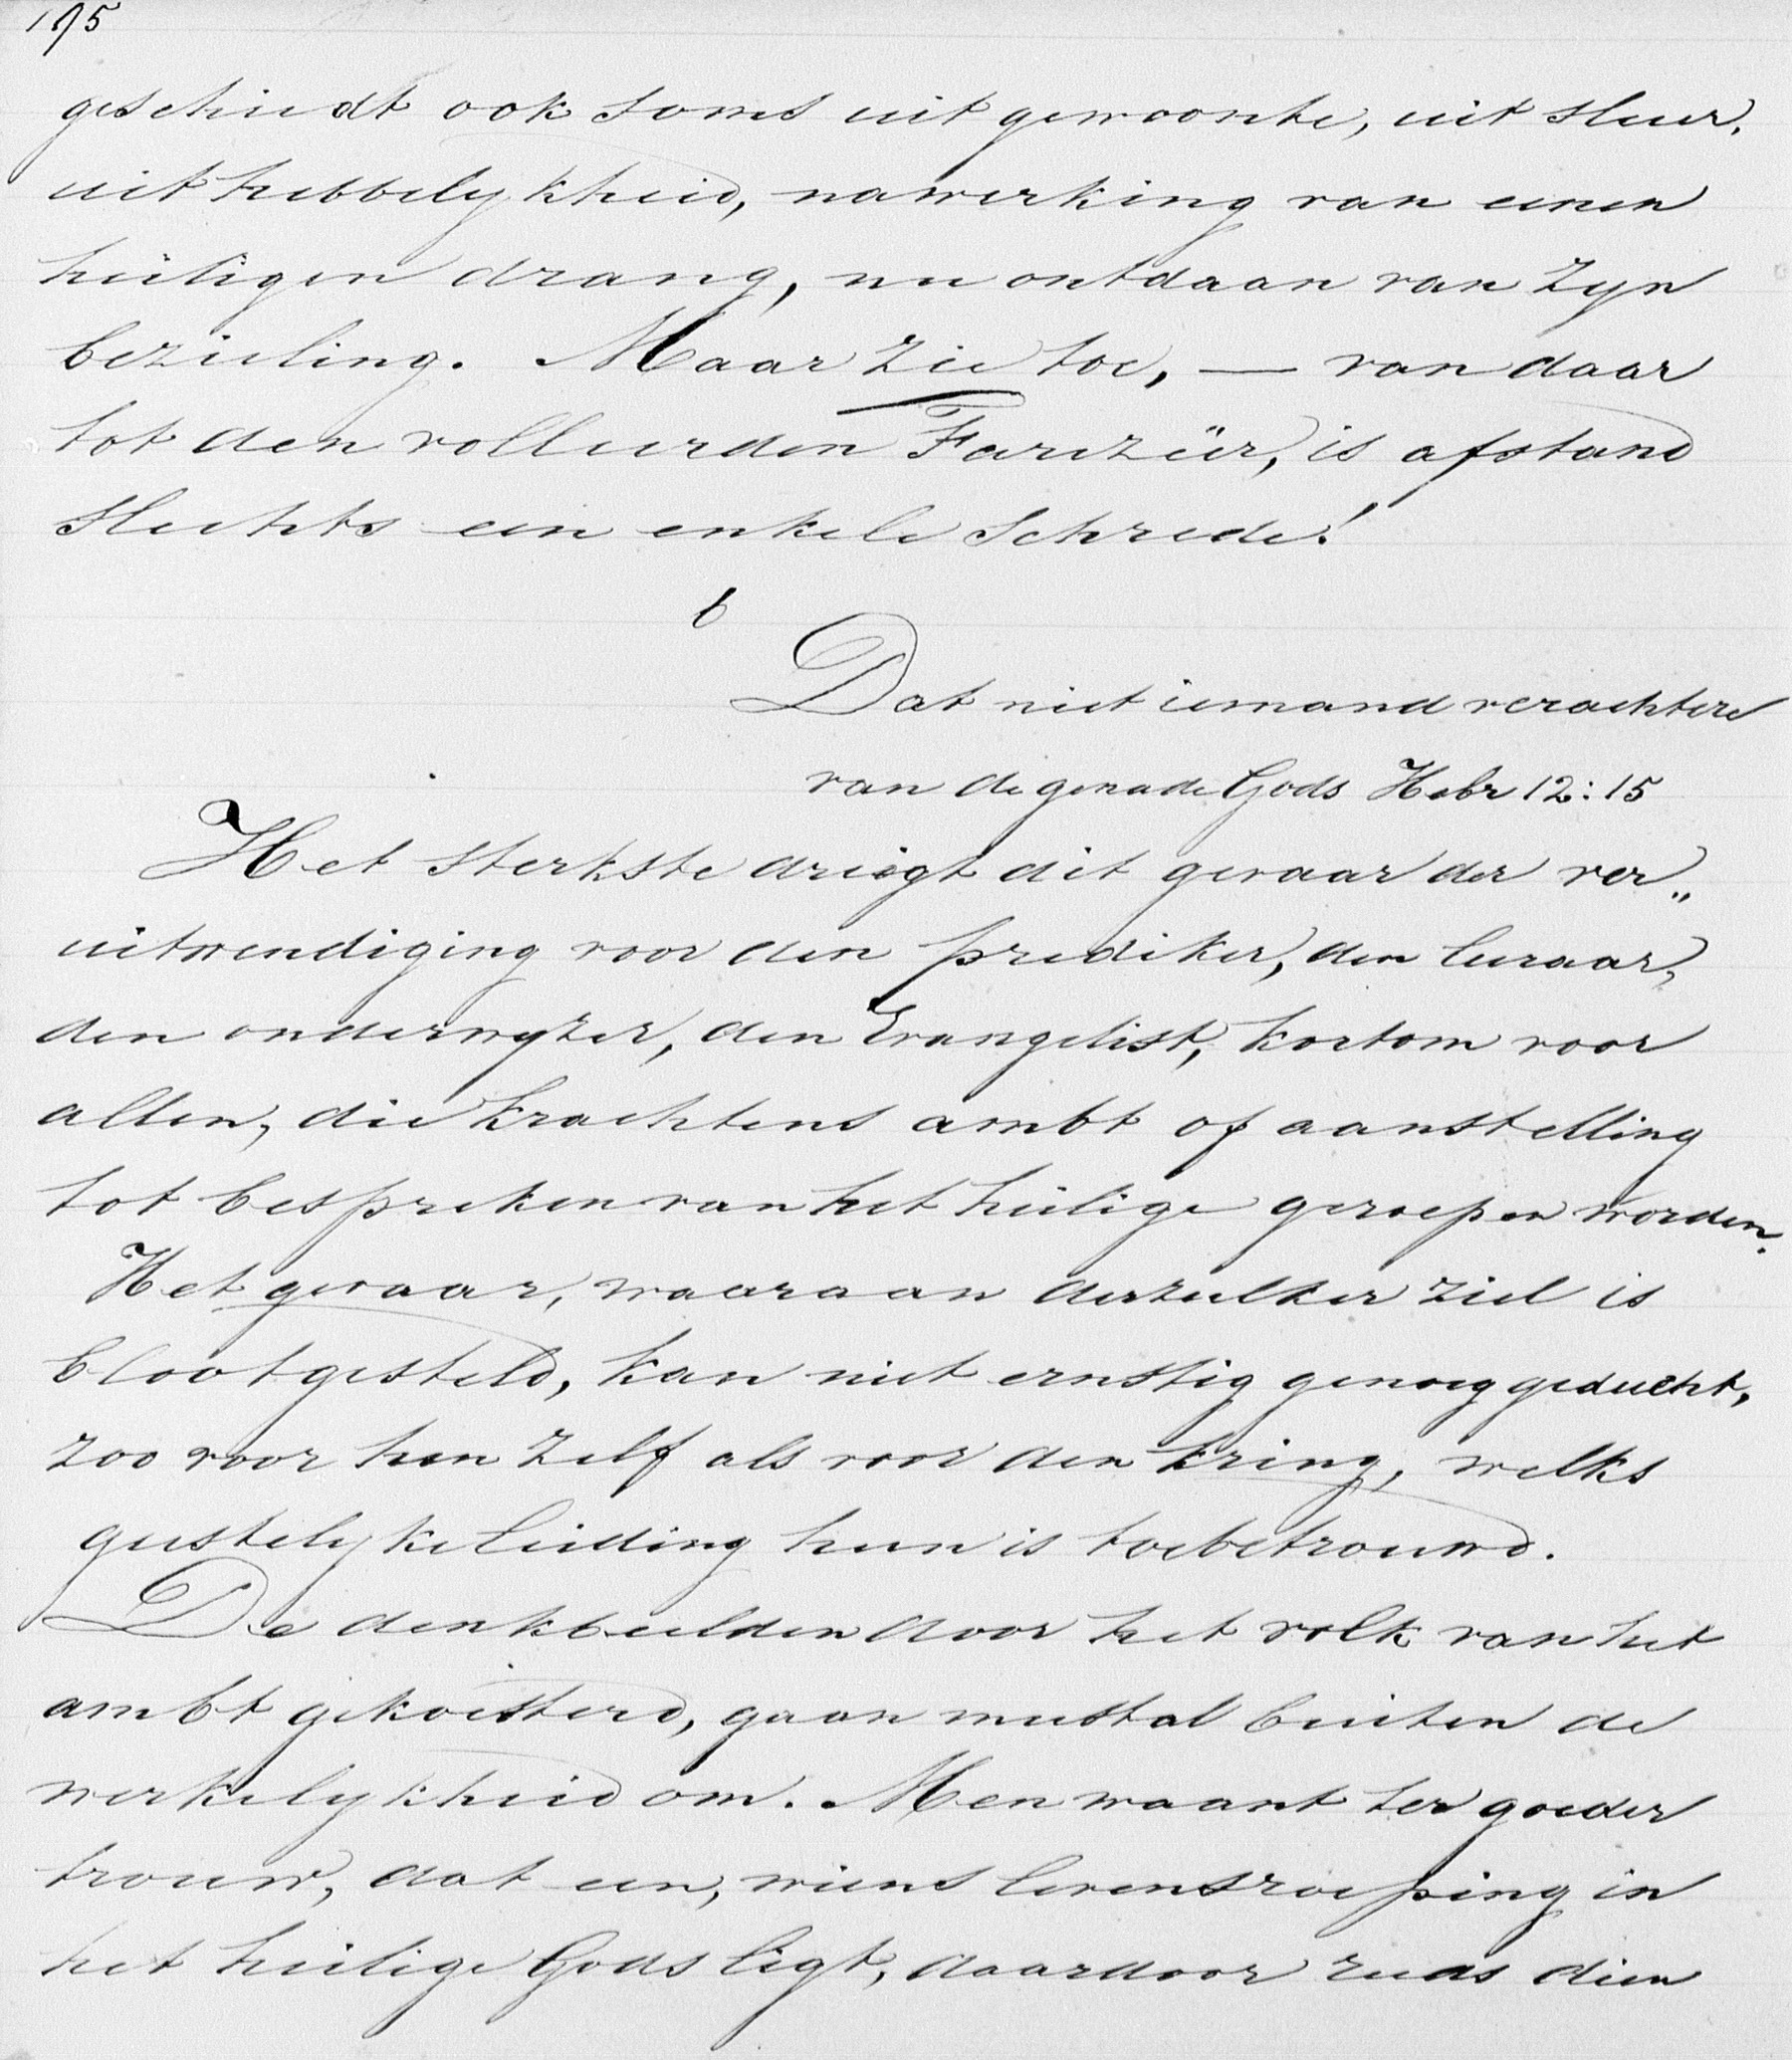 195
geschiedt ook soms uit gewoonte, uit sleur,
uit hebbelykheid, nawerking van eenen
heiligen drang, nu ontdaan van zyn
bezieling. Maar zie toe, — van daar
tot den volleerden Farizeër, is afstand
slechts een enkele schrede!
b
Dat niet iemand verachtere
van de genade Gods Hebr 12:15
Het sterkste dreigt dit gevaar der ver„
uitwendiging voor den prediker, den leeraar,
den onderwyzer, den Evangelist, kortom voor
allen, die krachtens ambt of aanstelling
tot bespreken van het heilige geroepen worden.
Het gevaar, waaraan derzulker ziel is
blootgesteld, kan niet ernstig genoeg geducht,
zoo voor hen zelf als voor den kring, welks
geestelyke leiding hun is toebetrouwd.
De denkbeelden door het volk van het
ambt gekoesterd, gaan meestal buiten de
werkelykheid om. Men waant ter goeder
trouw, dat een, wiens levensroeping in
het heilige Gods ligt, daardoor reeds dien